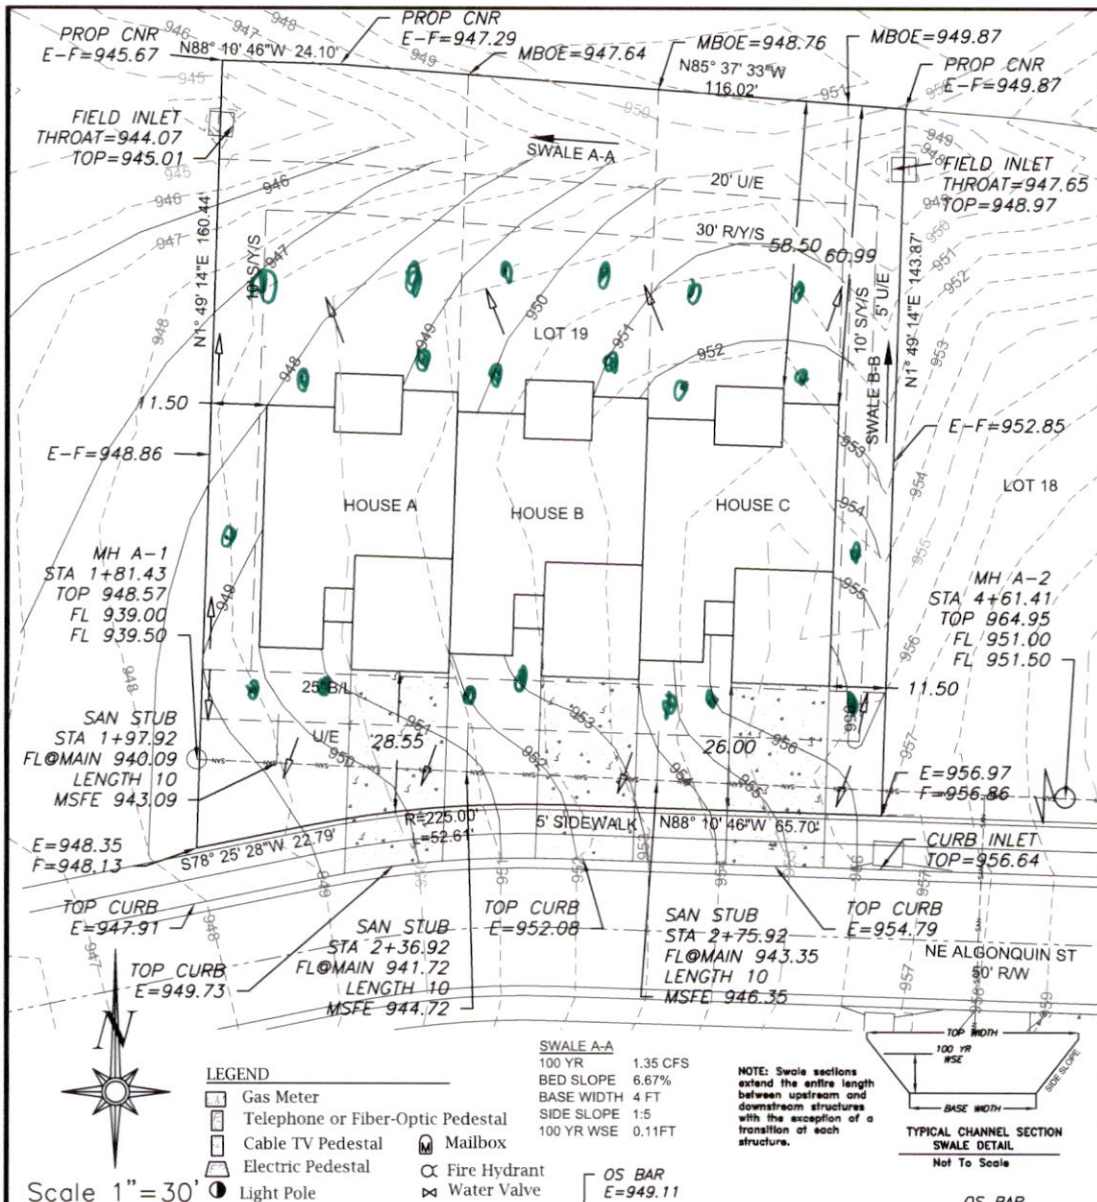 PROP CNR
E-F=945.67
N88° 10' 46"W 24.10'
PROP CNR
E-F=947.29
MBOE=947.64
MBOE=948.76
N85° 37' 33"W
116.02'
MBOE=949.87
PROP CNR
E-F=949.87
FIELD INLET
THROAT=944.07
TOP=945.01
SWALE A-A
20' U/E
30' R/Y/S
58.50
60.99
FIELD INLET
THROAT=947.65
TOP=948.97
N1° 49' 14"E 160.44'
10' S/Y/S
LOT 19
10' S/Y/S
5' U/E
SWALE B-B
N1° 49' 14"E 143.87'
946
947
948
949
950
951
952
953
954
955
956
11.50
E-F=948.86
E-F=952.85
LOT 18
HOUSE A
HOUSE B
HOUSE C
MH A-1
STA 1+81.43
TOP 948.57
FL 939.00
FL 939.50
MH A-2
STA 4+61.41
TOP 964.95
FL 951.00
FL 951.50
25' B/L
U/E
28.55
26.00
11.50
SAN STUB
STA 1+97.92
FL@MAIN 940.09
LENGTH 10
MSFE 943.09
E=956.97
F=956.86
E=948.35
F=948.13
S78° 25' 28"W 22.79'
R=225.00'
=52.61'
5' SIDEWALK
N88° 10' 46"W 65.70'
CURB INLET
TOP=956.64
TOP CURB
E=947.91
TOP CURB
E=949.73
SAN STUB
STA 2+36.92
FL@MAIN 941.72
LENGTH 10
MSFE 944.72
TOP CURB
E=952.08
SAN STUB
STA 2+75.92
FL@MAIN 943.35
LENGTH 10
MSFE 946.35
TOP CURB
E=954.79
NE ALGONQUIN ST
50' R/W
N
Scale 1"=30'
LEGEND
Gas Meter
Telephone or Fiber-Optic Pedestal
Cable TV Pedestal
Electric Pedestal
Light Pole
M Mailbox
Fire Hydrant
Water Valve
SWALE A-A
100 YR 1.35 CFS
BED SLOPE 6.67%
BASE WIDTH 4 FT
SIDE SLOPE 1:5
100 YR WSE 0.11FT
OS BAR
E=949.11
NOTE: Swale sections
extend the entire length
between upstream and
downstream structures
with the exception of a
transition at each
structure.
TOP WIDTH
100 YR
WSE
SIDE SLOPE
BASE WIDTH
TYPICAL CHANNEL SECTION
SWALE DETAIL
Not To Scale
OS BAR